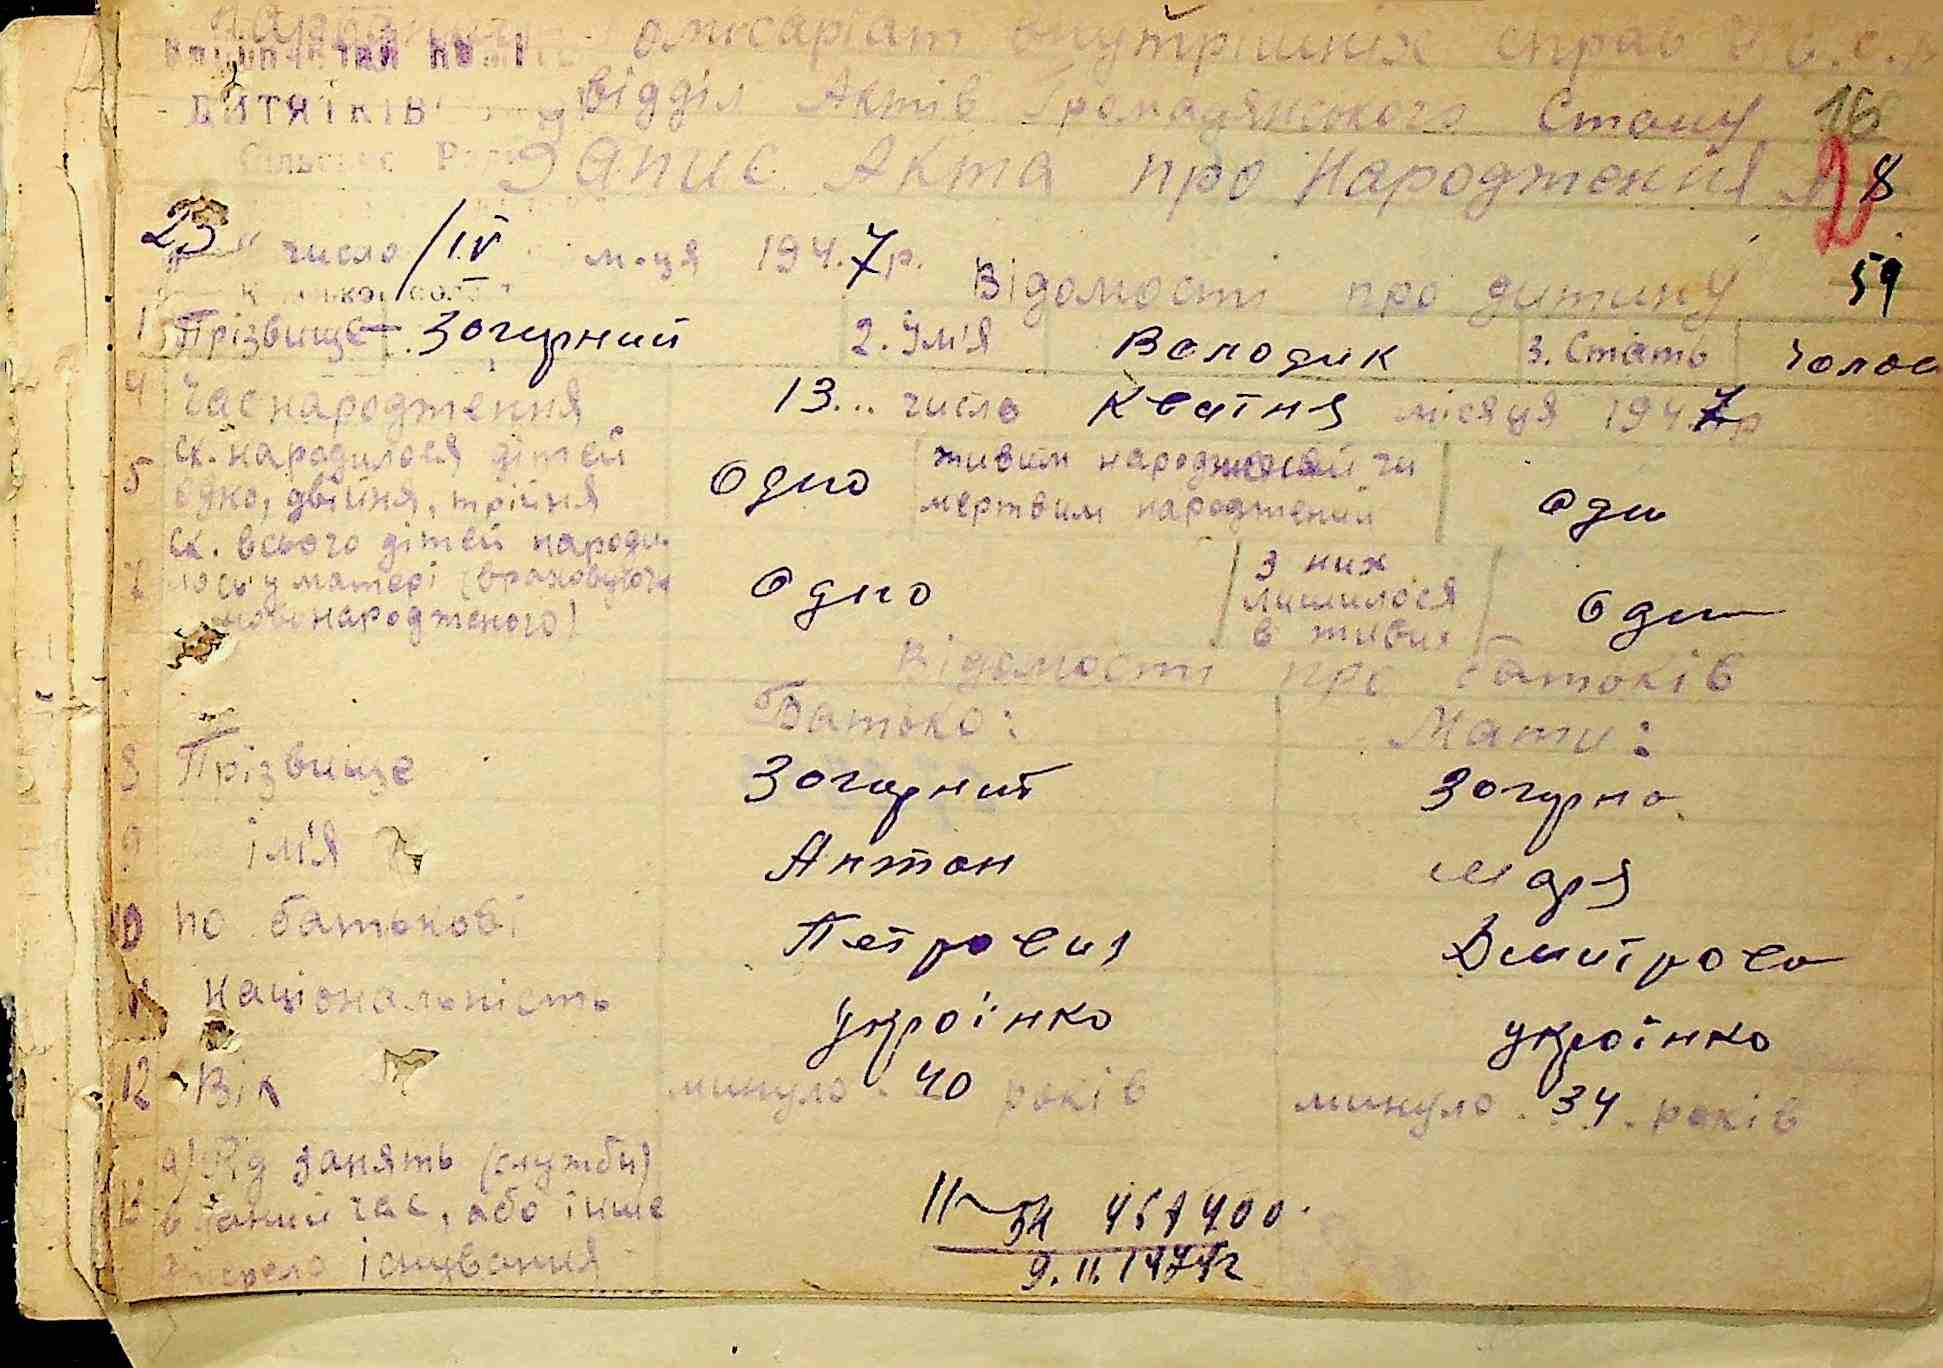 внутрішніх справ
ДИТЯТКІВ
Відділ Актів Громадянського Стану 16
Запис Акта про Народження № 8
2
23 " число /IV м-ця 1947р.
Відомості про дитину 59
1 Прізвище Зогурний 2. Ім'я Володик 3. Стать чолов
4 Час народження 13... число Квітня місяця 1947р
5 ск. народилося дітей одно, двійня, трійня Одно живим народжений чи мертвим народжений одно
7 ск. всього дітей народилось у матері (враховуючи новонародженого) Одно з них лишилося в живих Одно
Відомості про батьків
Батько: Мати:
8 Прізвище Зогурний Зогурно
9 ім'я Антон Маря
10 по батькові Петрович Дмитрово
11 Національність українко українко
12 Вік минуло 40 років минуло 34 років
13 а) Рід занять (служби) в даний час, або інше джерело існування